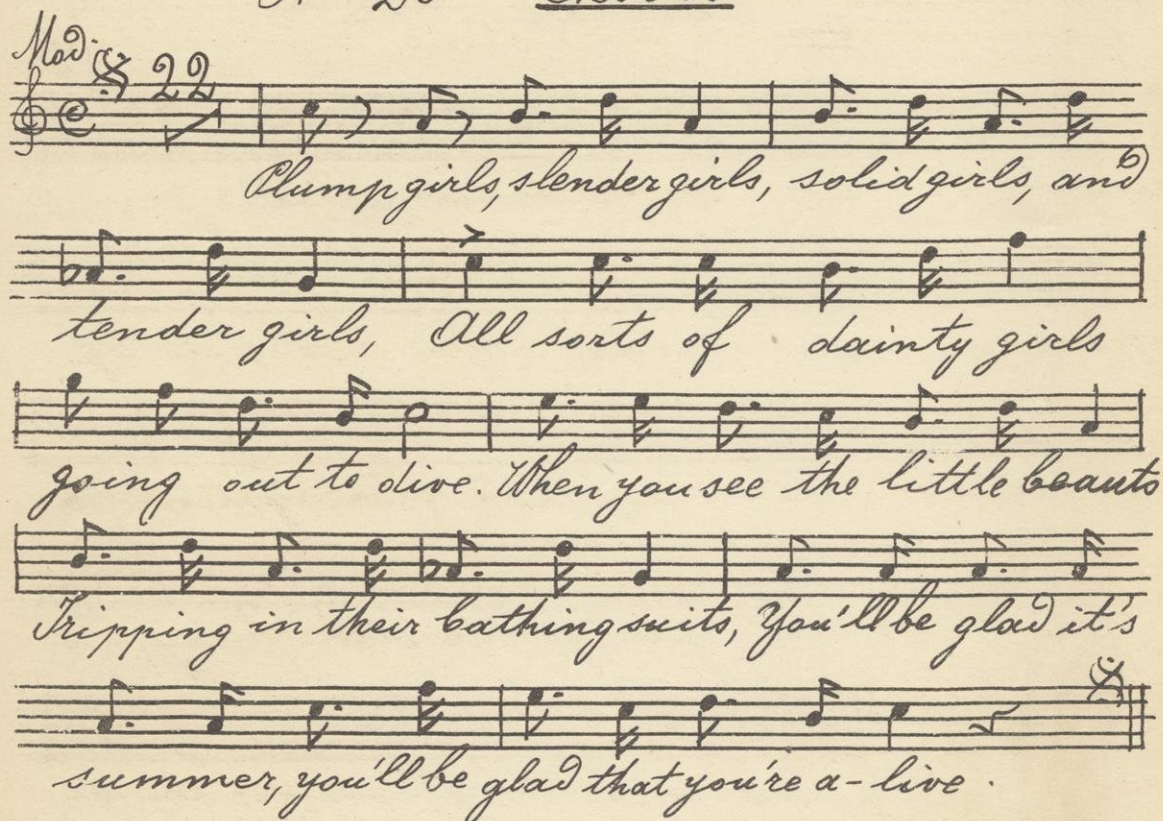 Mod.
22
Plump girls, slender girls, solid girls, and
tender girls, All sorts of dainty girls
going out to dive. When you see the little beauts
Tripping in their bathing suits, You'll be glad it's
summer, you'll be glad that you're a-live.